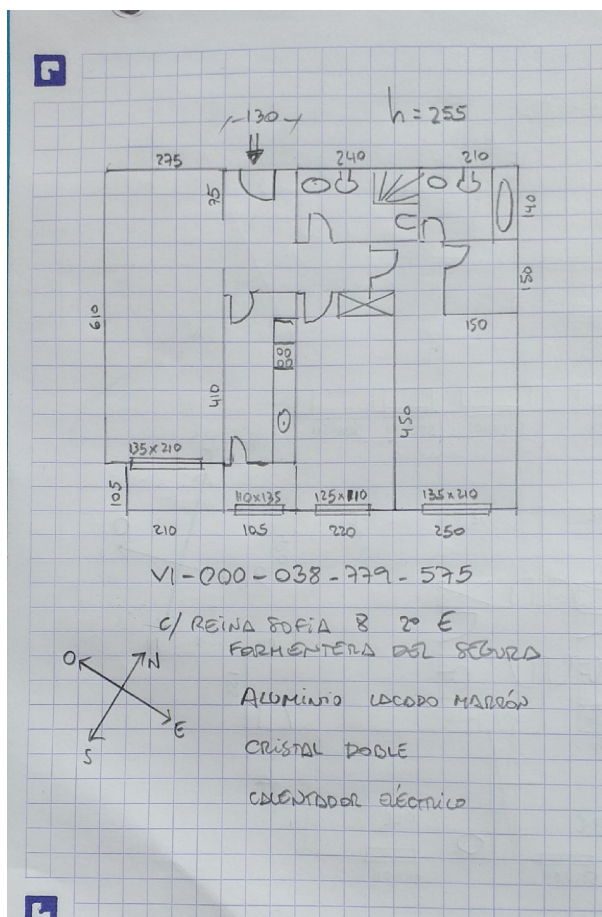 130
h = 255
275
240
210
75
140
150
610
150
410
450
135x210
110x135
125x110
135x210
105
210
105
220
250
VI-000-038-779-575
C/ REINA SOFíA 8 2º E
FORMENTERA DEL SEGURA
O
N
S
E
ALUMINIO LACADO MARRÓN
CRISTAL DOBLE
CALENTADOR ELÉCTRICO